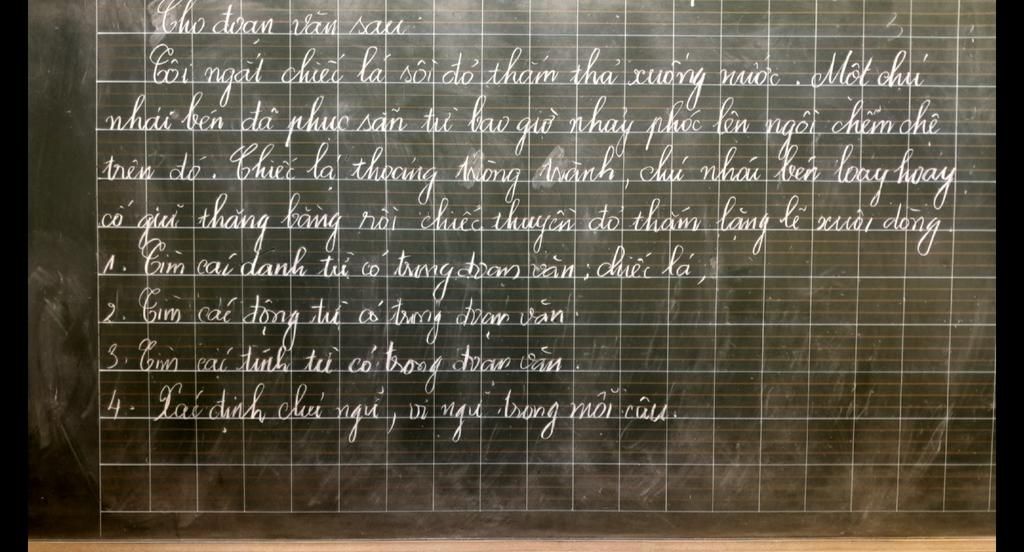 Cho đoạn văn sau:
Tôi ngắt chiếc lá sồi đỏ thắm thả xuống nước. Một chú
nhái bén đã phục sẵn từ bao giờ nhảy phóc lên ngồi chễm chệ
trên đó. Chiếc lá thoáng tròng trành, chú nhái bén loay hoay
cố giữ thăng bằng rồi chiếc thuyền đỏ thắm lặng lẽ xuôi dòng.
1. Tìm các danh từ có trong đoạn văn; chiếc lá,
2. Tìm các động từ có trong đoạn văn.
3. Tìm các tính từ có trong đoạn văn.
4. Xác định chủ ngữ, vị ngữ trong mỗi câu.